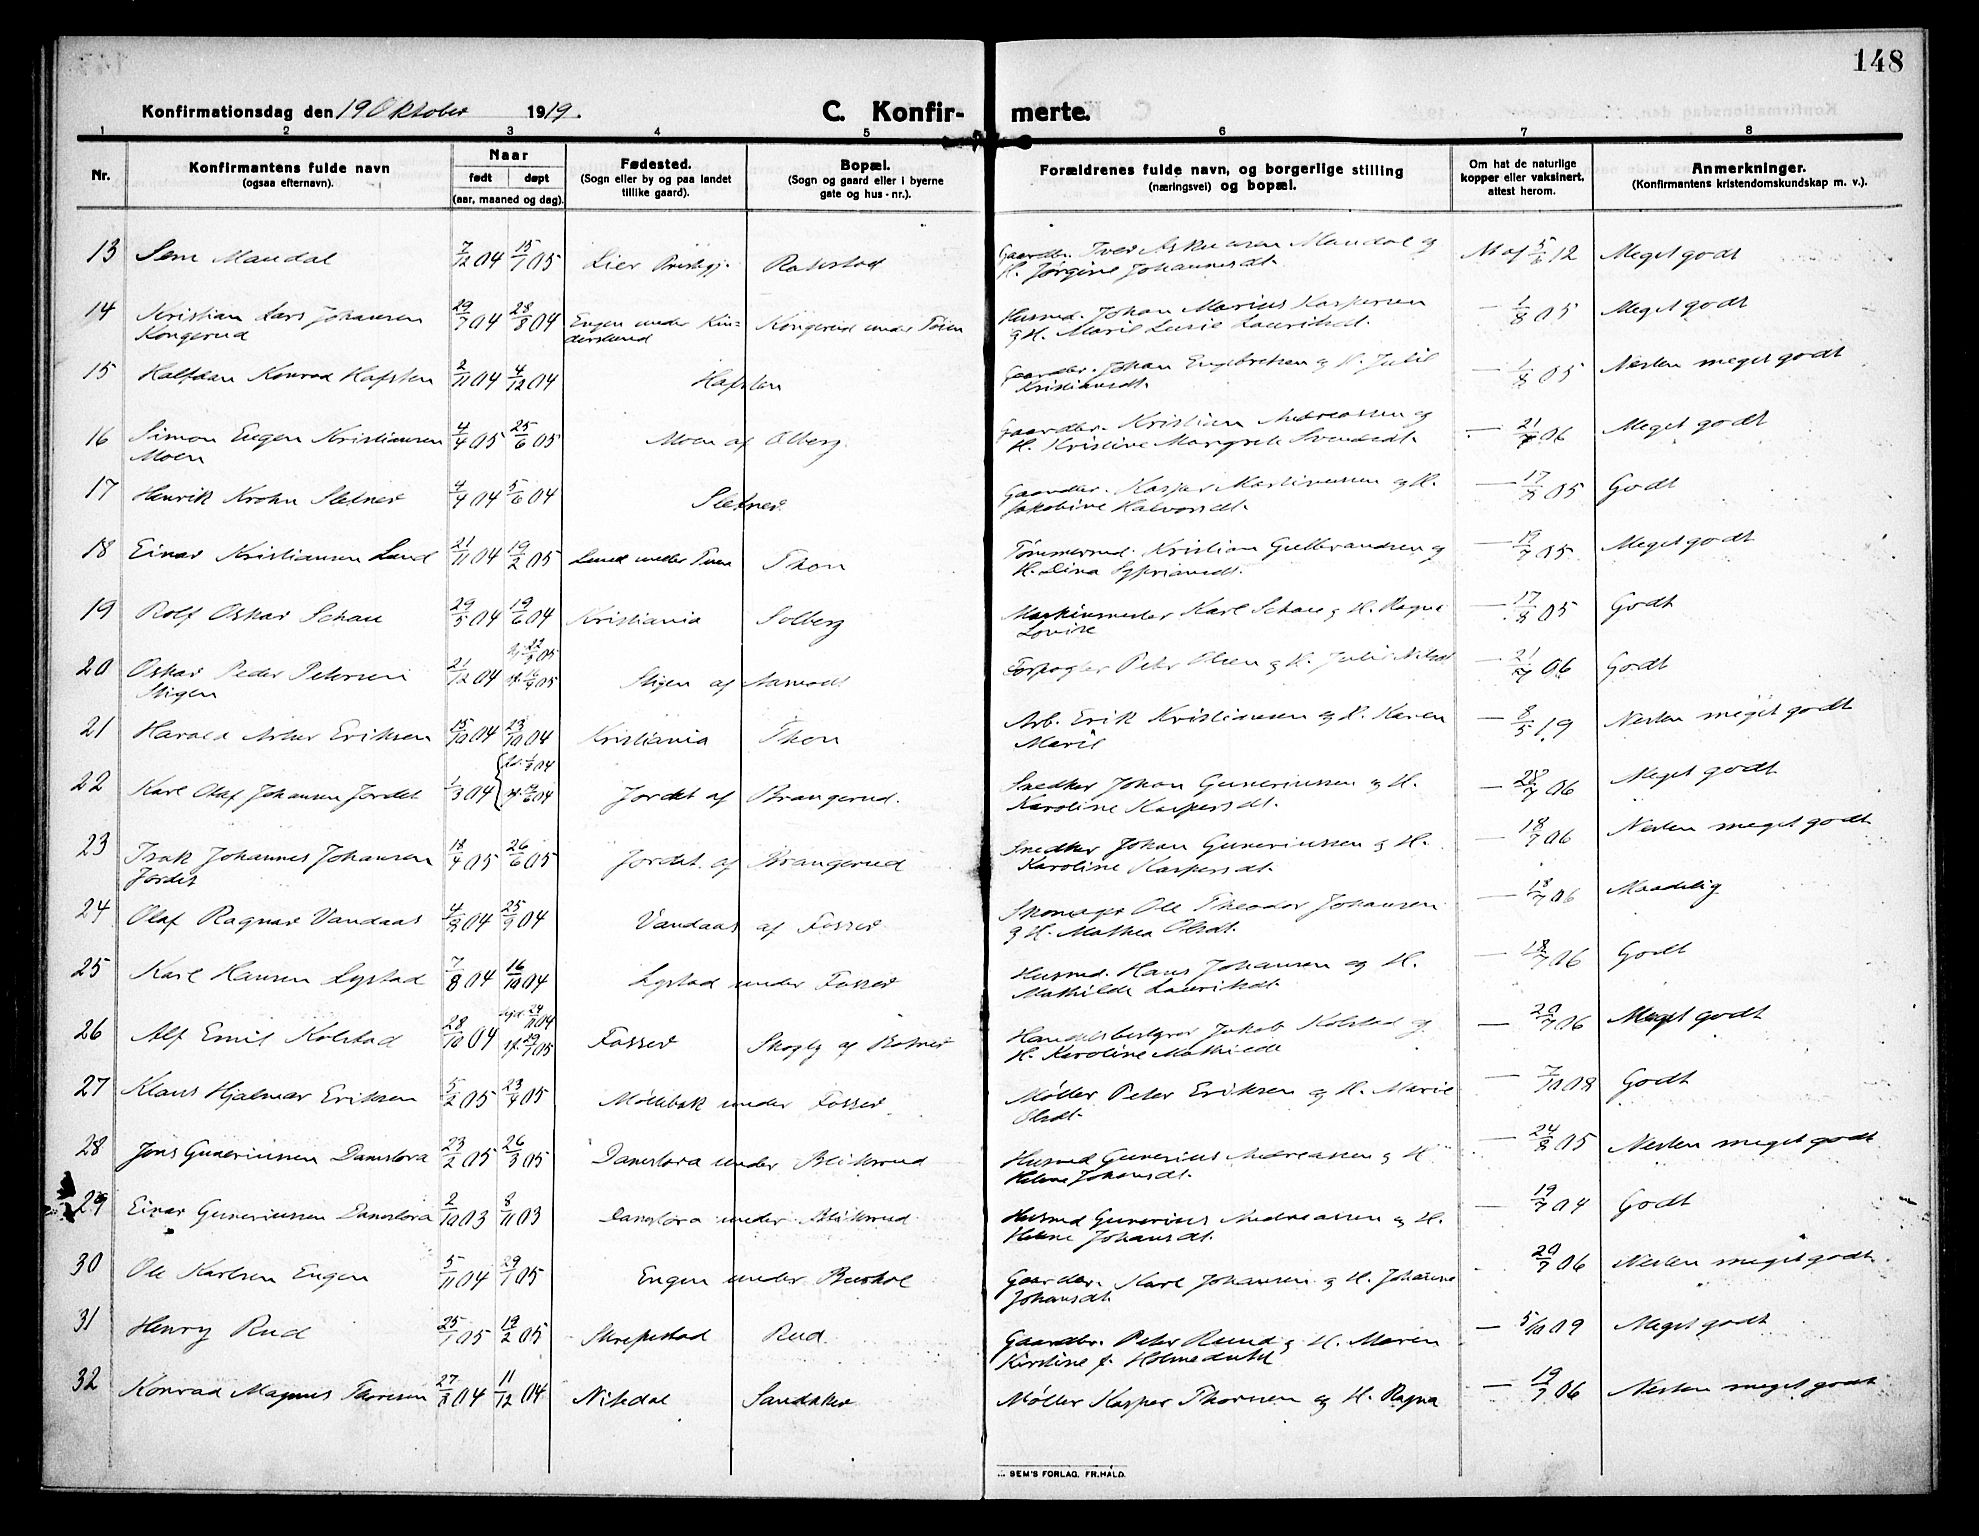 148
Konfirmationsdag den 19 Oktober 1919.
C. Konfir-
merte.
1 2 3 4 5 6 7 8
Nr.
Konfirmantens fulde navn
(ogsaa efternavn).
Naar
født døpt
(aar, maaned og dag).
Fødested.
(Sogn eller by og paa landet
tillike gaard).
Bopæl.
(Sogn og gaard eller i byerne
gate og hus-nr.).
Forældrenes fulde navn, og borgerlige stilling
(næringsvei) og bopæl.
Om hat de naturlige
kopper eller vaksinert,
attest herom.
Anmerkninger.
(Konfirmantens kristendomskundskap m. v.).
13 Sem Maudal 7/12 04 15/1 05 Lier Meget godt
H. Jørgine Johannesdt. 5/6 12
14 Kristian Lars Johansen 29/7 04 28/8 04 Engen under Kin= Kongerud under Tøien Husmd. Johan Marius Kaspersen — 1/8 05 Meget godt
Kongerud derslund & H. Marie Lusie Lauritsdt.
15 Halfdan Konrad Hafsten 2/11 04 4/12 04 Hafsten Gaardbr. Johan Engebretsen & H. Julie — 1/8 05 Nesten meget godt
Kristiansdt.
16 Simon Eugen Kristiansen 4/4 05 25/6 05 Moen af Olberg. Gaardbr. Kristian Andreassen og — 21/7 06 Meget godt
Moen H. Kristine Margrete Svendsdt.
17 Henrik Krohn Sletner 4/4 04 5/6 04 Sletner Gaardbr. Kaspar Martinussen og H. — 17/8 05 Godt
Jakobine Halvorsdt.
18 Einar Kristiansen Lund 21/11 04 19/2 05 Lund under Thon Kristian Gulbrandsen og — 19/7 05 Meget godt
H. Lina Sypriansdt.
19 Rolf Oskar Schau 29/5 04 19/6 04 Kristiania Solberg Maskinmester Karl Schau & H. Ragna — 17/8 05 Godt
Lovise
20 Oskar Peder Petersen 21/12 04 Stigen af Forpagter Petr Olsen & H. Julie — 21/7 06 Godt
Stigen
21 Harald Artur Eriksen 15/10 04 23/10 04 Kristiania Thon Arb. Erik Kristiansen og H. Karen — 8/5 19 Nesten meget godt
Marie
22 Karl Olaf Johansen Jordet 1/3 04 Jordet af Brangerud. Snedker Johan Guneriussen og H. — 28/7 06 Meget godt
Karoline Kaspersdt.
23 Isak Johannes Johansen 18/4 05 26/6 05 Jordet af Brangerud Snedker Johan Gunerinssen og H. — 18/7 06 Nesten meget godt
Jordet Karoline Kaspersdt.
24 Olaf Ragnar Vandaas 4/8 04 25/9 04 Vandaas af Fosser Skomager Ole Theodor Johansen — 18/7 06 Maadelig
& H. Mathea Olsdt.
25 Karl Hansen Lystad 7/8 04 16/10 04 Lystad under Fosser Husmd. Hans Johansen og H. — 18/7 06 Godt
Mathilde Lauritsdt.
26 Alf Emil Kolstad 28/10 04 Fosser Skogly af Handelsbestyrer Jakob Kolstad og — 20/7 06 Meget godt
H. Karoline Mathilde
27 Klaus Hjalmar Eriksen 5/2 05 23/4 05 Møllebak under Fosser Møller Peter Eriksen og H. Marie — 7/10 08 Godt
Olsdt.
28 Jens Guneriussen Danslora 23/2 05 26/3 05 Danslora under Blikrud Husmd Gunerius Andreassen & H — 24/8 05 Nesten meget godt
Helene Johansdt.
29 Einar Guneriussen Danslora 2/10 03 8/11 03 Danslora under Blikrud Husmd Gunerius Andreassen & H. — 19/7 04 Godt
Helene Johansdt.
30 Ole Karlsen Engen 5/11 04 29/1 05 Engen under Buskol Gaardbr. Karl Johansen & H. Johanne 20/7 06 Nesten meget godt.
Johansdt.
31 Henry Rud 25/1 05 19/2 05 Skrepestad Rud Gaardbr. Peter Ruud & H. Maren — 5/10 09 Meget godt
Kirstine f.
32 Konrad Magnus Thoresen 27/8 04 11/12 04 Nitedal Sandaker Møller Kasper Thoresen og H. Ragna — 19/7 06 Nesten meget godt
SEM'S FORLAG, FR.HALD.